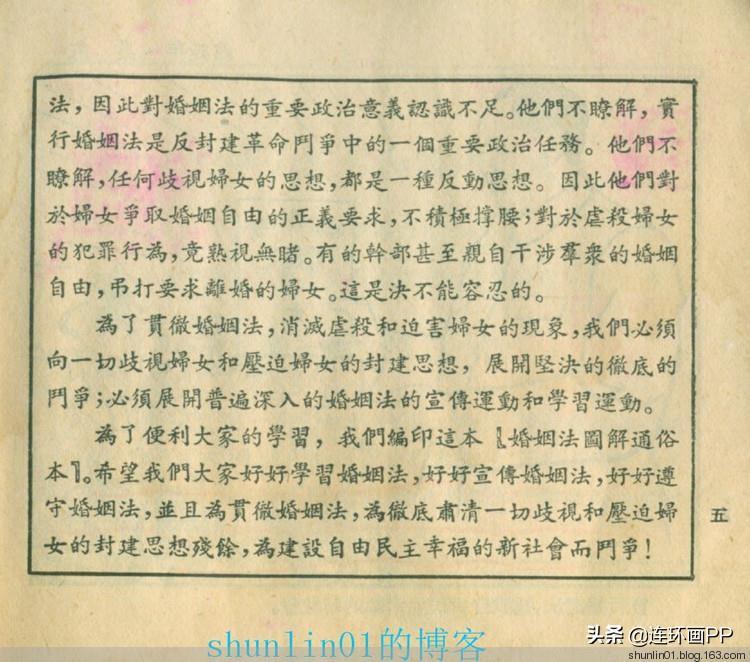 法，因此對婚姻法的重要政治意義認識不足。他們不瞭解，實
行婚姻法是反封建革命鬥爭中的一個重要政治任務。他們不
瞭解，任何歧視婦女的思想，都是一種反動思想。因此他們對
於婦女爭取婚姻自由的正義要求，不積極撐腰；對於虐殺婦女
的犯罪行為，竟熟視無睹。有的幹部甚至親自干涉羣衆的婚姻
自由，吊打要求離婚的婦女。這是決不能容忍的。
為了貫徹婚姻法，消滅虐殺和迫害婦女的現象，我們必須
向一切歧視婦女和壓迫婦女的封建思想，展開堅決的徹底的
鬥爭；必須展開普遍深入的婚姻法的宣傳運動和學習運動。
為了便利大家的學習，我們編印這本【婚姻法圖解通俗
本】。希望我們大家好好學習婚姻法，好好宣傳婚姻法，好好遵
守婚姻法，並且為貫徹婚姻法，為徹底肅清一切歧視和壓迫婦
女的封建思想殘餘，為建設自由民主幸福的新社會而鬥爭！
五
shunlin01的博客
头条 @连环画PP
shunlin01.blog.163.com